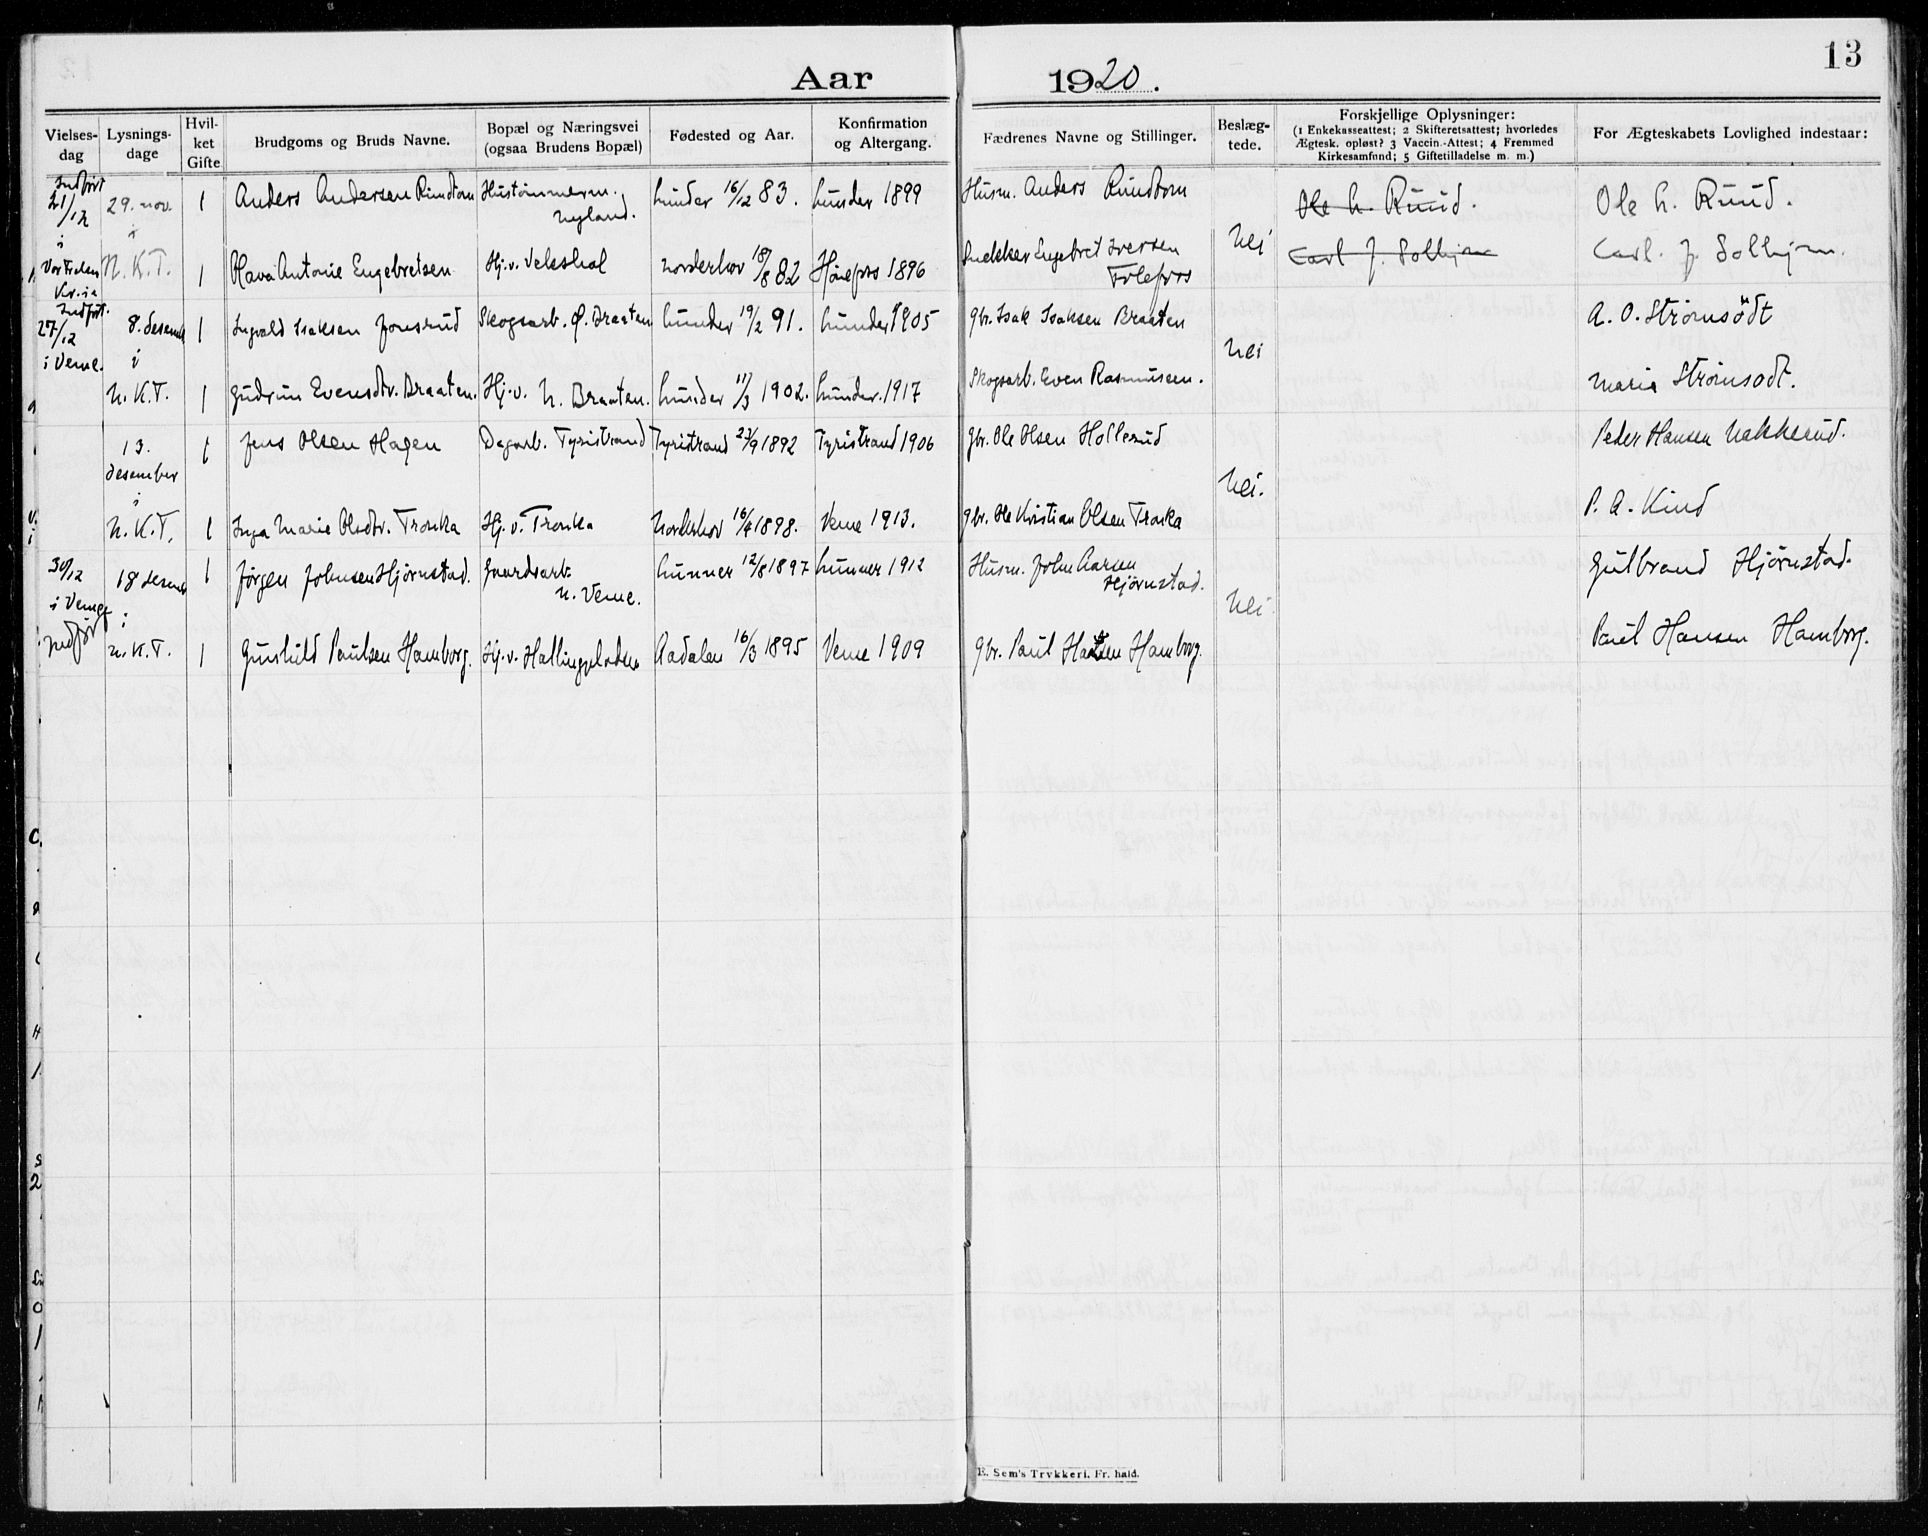 13
Aar 1920.
Vielses-dag
Lysnings-dage
Hvil-ket Gifte
Brudgoms og Bruds Navne.
Bopæl og Næringsvei (ogsaa Brudens Bopæl)
Fødested og Aar.
Konfirmation og Altergang.
Fædrenes Navne og Stillinger.
Beslæg-tede.
Forskjellige Oplysninger:
(1 Enkekasseattest; 2 Skifteretsattest; hvorledes
Ægtesk. opløst? 3 Vaccin.-Attest; 4 Fremmed
Kirkesamfund; 5 Giftetilladelse m. m.)
For Ægteskabets Lovlighed indestaar:
Indført 21/12 i Vor Frelsers Kr.ia
29. nov. i N.K.T.
1 Anders Andersen Rundtom Hustømmerm. Nyland. Lunder 16/12 83. Lunder 1899 Husm. Anders Rundtom Ole L. Ruud. Ole L. Ruud.
nei
1 Olava Antonie Engebretsen Hj.v. Vekshal Norderhov 18/8 82 Hønefos 1896 Snekker Engebret Iversen Carl J. Solhjem Carl. J. Solhjem.
Indført. 27/12 i Veme.
8. desemb i N.K.T.
1 Ingvald Isaksen Jonsrud Skogsarb. Ø. Braaten Lunder 19/2 91. Lunder 1905 gbr. Isak Isaksen Braaten A. O. Strømsödt
nei
1 Gudrun Evensdtr. Braaten. Hj.v. N. Braaten. Lunder 11/3 1902. Lunder. 1917 Skogsarb. Even Rasmussen. Marie Strømsodt.
13. desember i N.K.T.
1 Jens Olsen Hagen Dagarb. Tyristrand Tyristrand 23/9 1892 Tyristrand 1906 gbr. Ole Olsen Hollerud Peder Hansen Nakkerud.
nei.
1 Inga Marie Olsdtr. Tronka Hj.v. Tronka Norderhov 16/4 1898. Veme 1913. gbr. Ole Kristian Olsen Tronka P. A. Kind
30/12 i Veme Indført
18 desemb i N.K.T.
1 Jørgen Johnsen Hjørnstad. Gaardsarb. N. Veme. Lunner 12/8 1897 Lunner 1912 Husm. John Larsen Hjørnstad. Gulbrand Hjørnstad.
nei
1 Gunhild Paulsen Hamborg. Hj.v. Aadalen 16/3 1895 Veme 1909 gbr. Paul Hansen Hamborg. Paul Hansen Hamborg.
E. Sem's Trykkeri, Fr. hald.